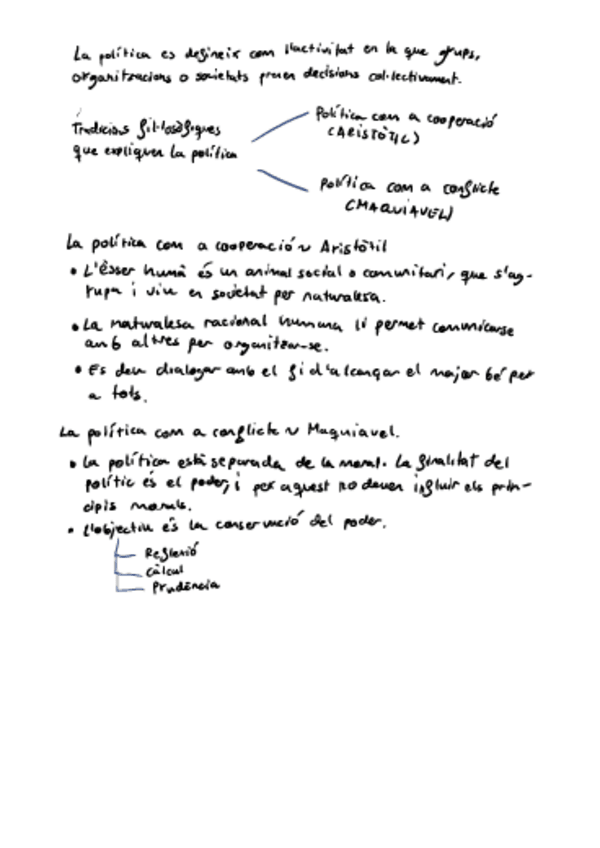 La política es defineix com l'activitat en la que grups,
organitzacions o societats prenen decisions col·lectivament.
Tradicions fil·losòfiques
que expliquen la política
Política com a cooperació
(ARISTÒTIL)
Política com a conflicte
(MAQUIAVEL)
La política com a cooperació ~ Aristòtil
• L'ésser humà és un animal social o comunitari, que s'ag-
rupa i viu en societat per naturalesa.
• La naturalesa racional humana li permet comunicarse
amb altres per organitzar-se.
• Es deu dialogar amb el fi d'alcançar el major bé per
a tots.
La política com a conflicte ~ Maquiavel.
• La política està separada de la moral. La finalitat del
polític és el poder, i per aquest no deuen influir els prin-
cipis morals.
• L'objectiu és la conservació del poder.
Reflexió
Càlcul
Prudència